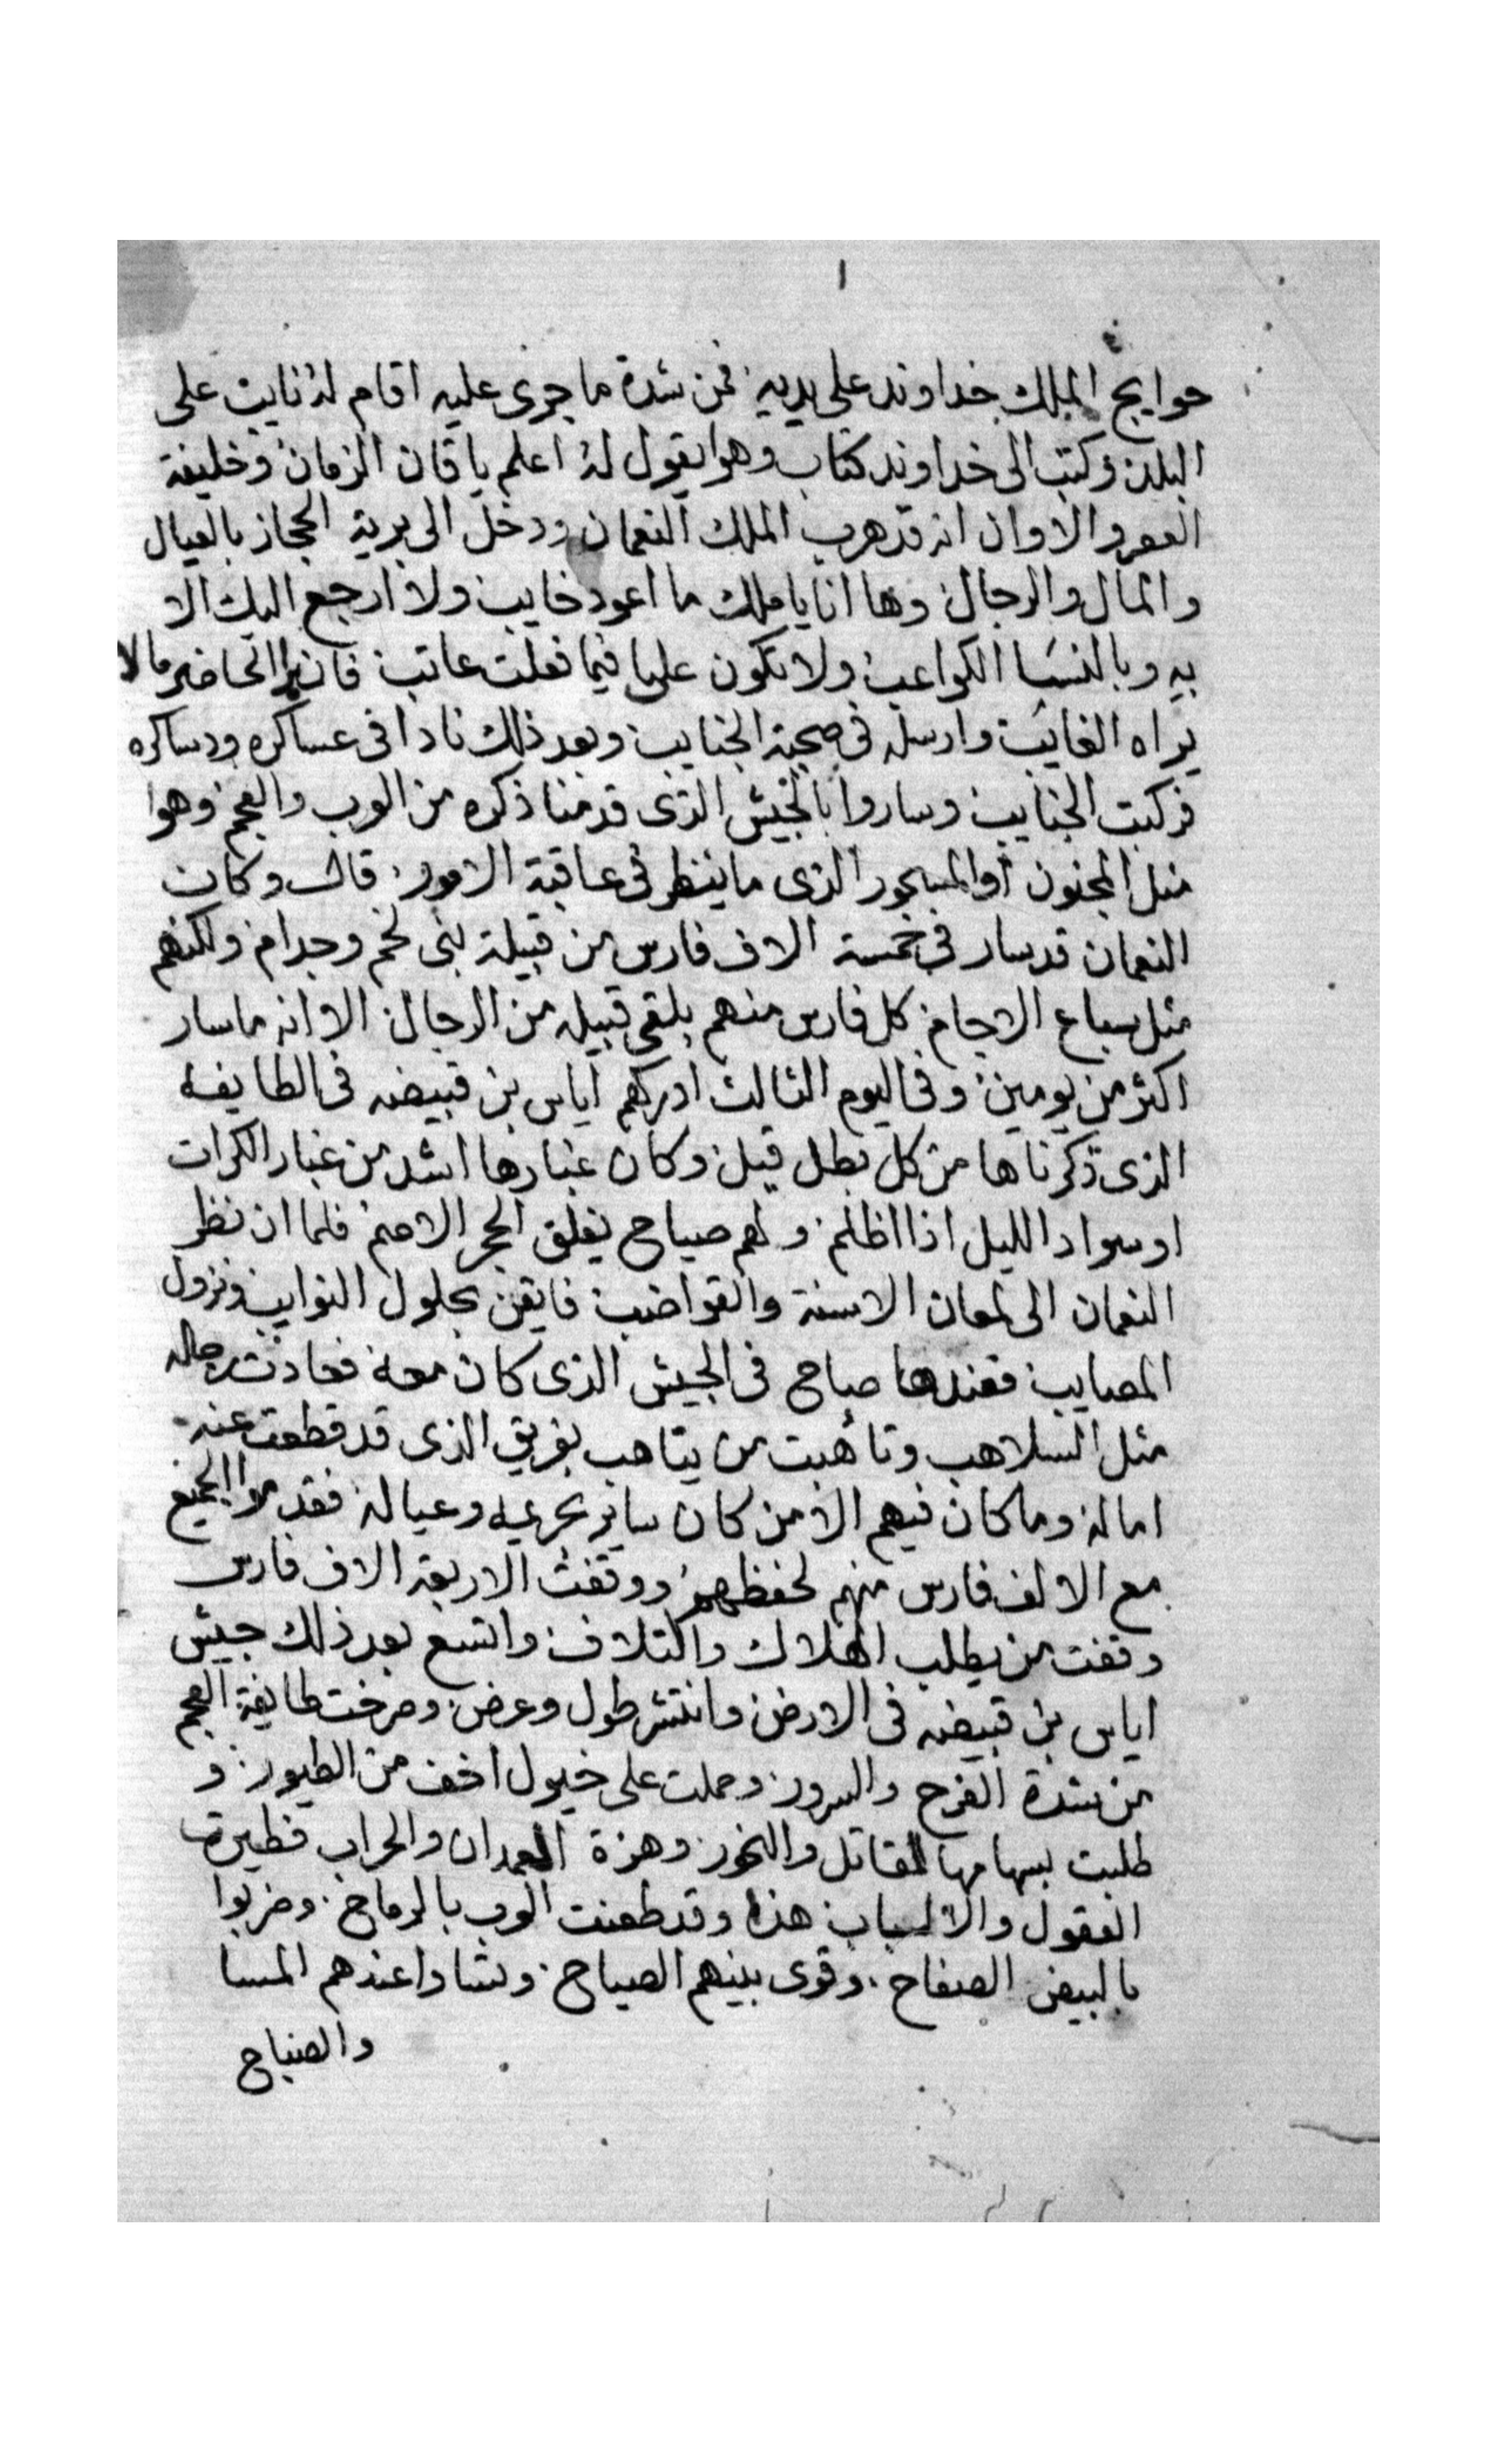 ١
حوايج الملك خداوند على يديه فمن شدة ما جرى عليه اقام له نايب على
البلد وكتب الى خداوند كتاب وهوا يقول له اعلم يا قان الزمان وخليفة
العصر والاوان انه قد هرب الملك النعمان ودخل الى برية الحجاز بالعيال
والمال والرجال وها انا يا ملك ما اعود خايب ولا ارجع اليك الا
بيه وبالنسا الكواعب ولا تكون عليا فيما فعلت عاتب فان يرا الحاضر ما لا
يراه الغايب وارسله في صحبة الجنايب وبعد ذلك نادا في عساكره ودساكره
فركبت الجنايب وساروا بالجيش الذى قدمنا ذكره من العرب والعجم وهوا
مثل المجنون أو المسحور الذى ما ينظر في عاقبة الامور قال وكان
النعمان قد سار في خمسة الاف فارس من قبيلة بنى لخم وجدام ولكنهم
مثل سباع الاجام كل فارس منهم يلقى قبيله من الرجال الا انه ما سار
اكثر من يومين وفى اليوم الثالث ادركهم اياس بن قبيضه فى الطايفه
الذى ذكرناها من كل بطل قيل وكان غبارها اشد من غبار الكرات
او سواد الليل اذا اظلم ولهم صياح يفلق الحجر الاصم فلما ان نظر
النعمان الى لمعان الاسنة والقواضب فايقن بحلول النوايب ونزول
المصايب فعندها صاح فى الجيش الذى كان معه فعادت رجاله
مثل السلاهب وتأهبت من يتاهب بفريق الذى قد قطعت عنه
اماله وما كان فيهم الا من كان ساير بحريمه وعياله فقدموا الجميع
مع الالف فارس منهم لحفظهم ووقفت الاربعة الاف فارس
وقفت من يطلب الهلاك والتلاف واتسع بعد ذلك جيش
اياس بن قبيضه فى الارض وانتشر طول وعرض وصرخت طايفة العجم
من شدة الفرح والسرور وحملت على خيول اخف من الطيور و
طلبت بسهامها المقاتل والنحور وهزة العمدان والحراب فطيرت
العقول والالباب هذا وقد طعنت العرب بالرماح وضربوا
بالبيض الصفاح وقوى بينهم الصياح وتساوا عندهم المسا
والصباح